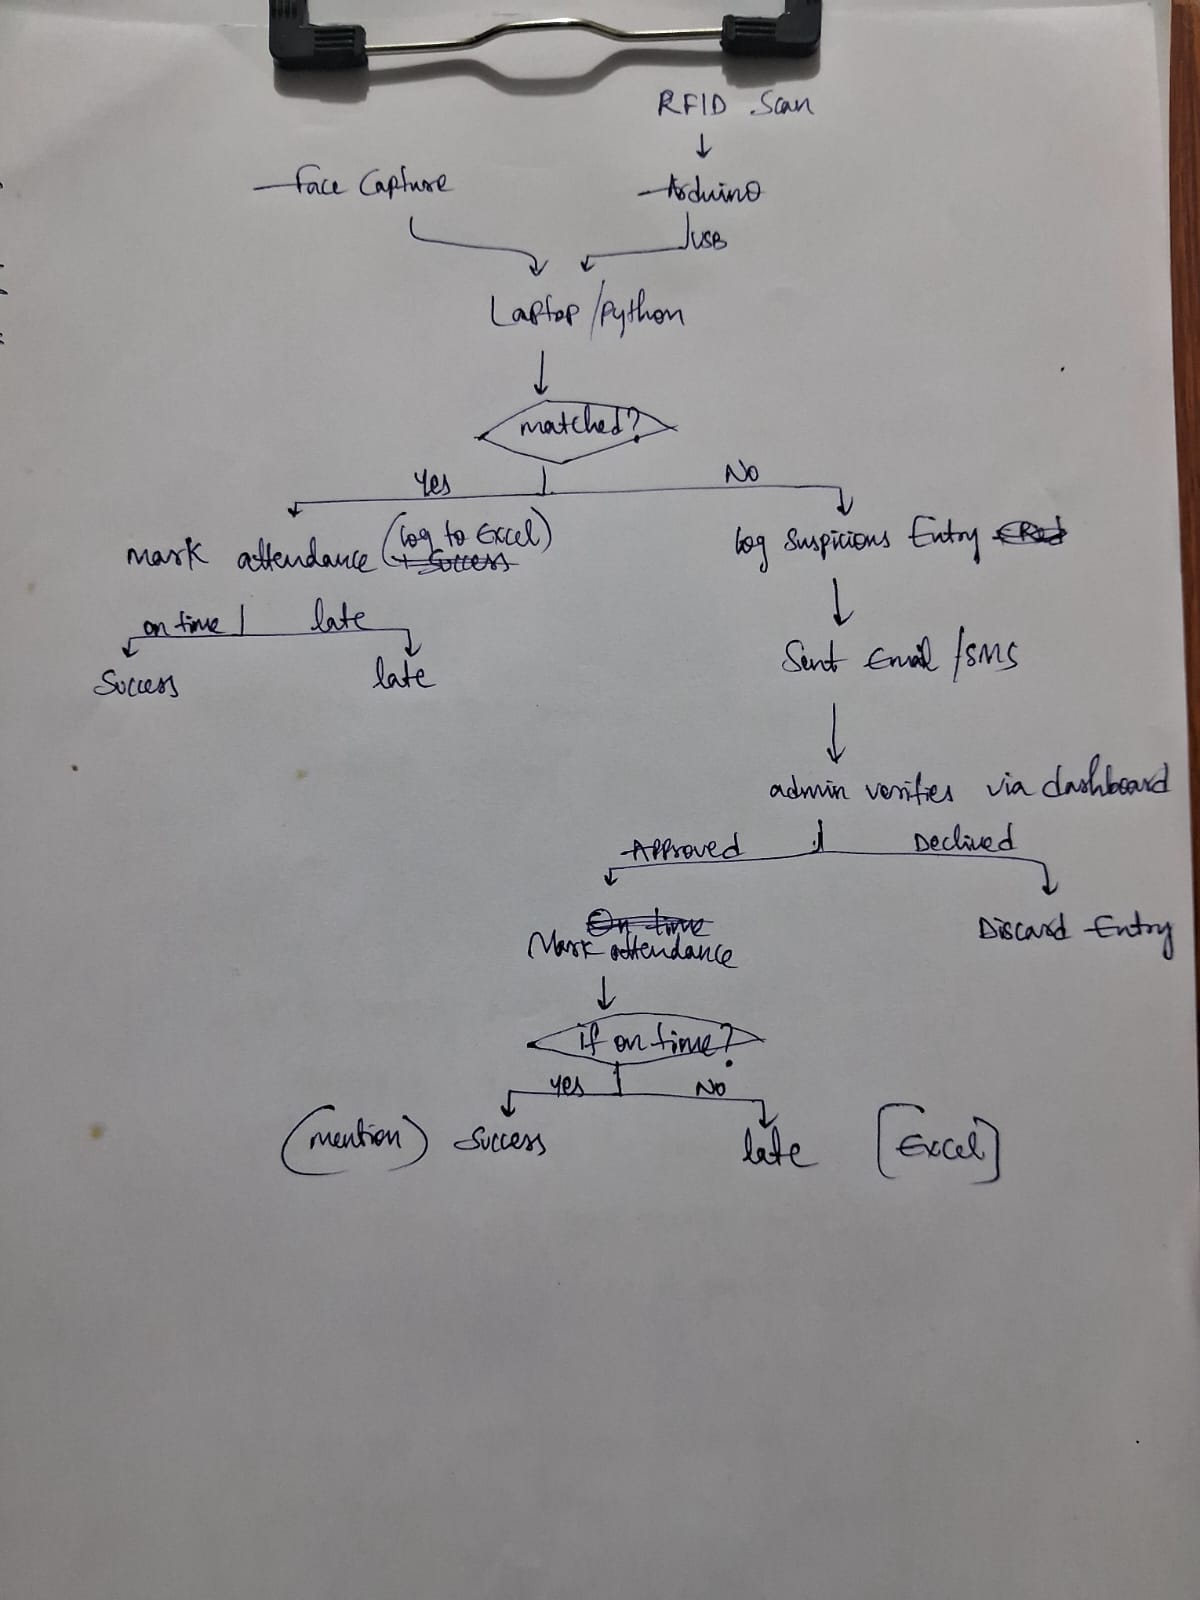 RFID Scan
Face Capture
Arduino
USB
Laptop/python
matched?
Yes
No
mark attendance (log to Excel)
+ Success
log Suspicious Entry
on time
late
Success
late
Sent Email/SMS
admin verifies via dashboard
Approved
Declined
On time
Mark attendance
Discard Entry
if on time?
yes
No
(mention) Success
late
[Excel]